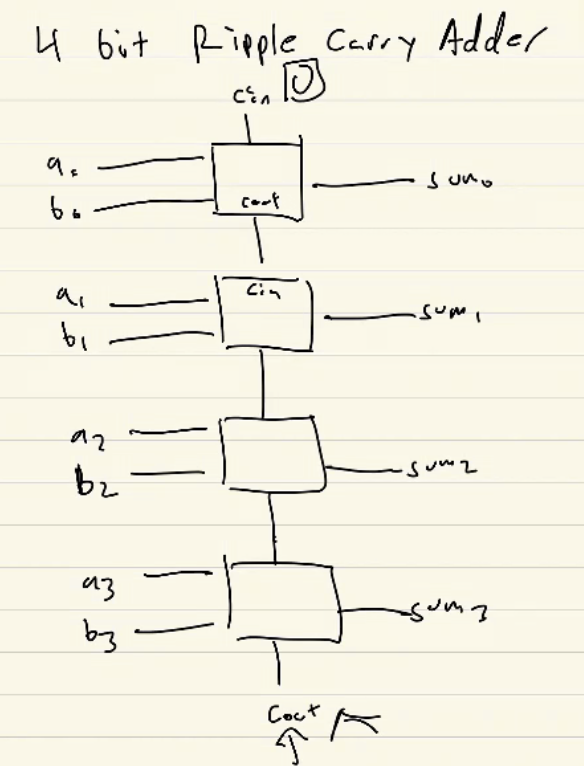 4 bit Ripple Carry Adder
Cin 0
a0
b0
cout
sum0
a1
b1
Cin
sum1
a2
b2
sum2
a3
b3
sum3
Cout